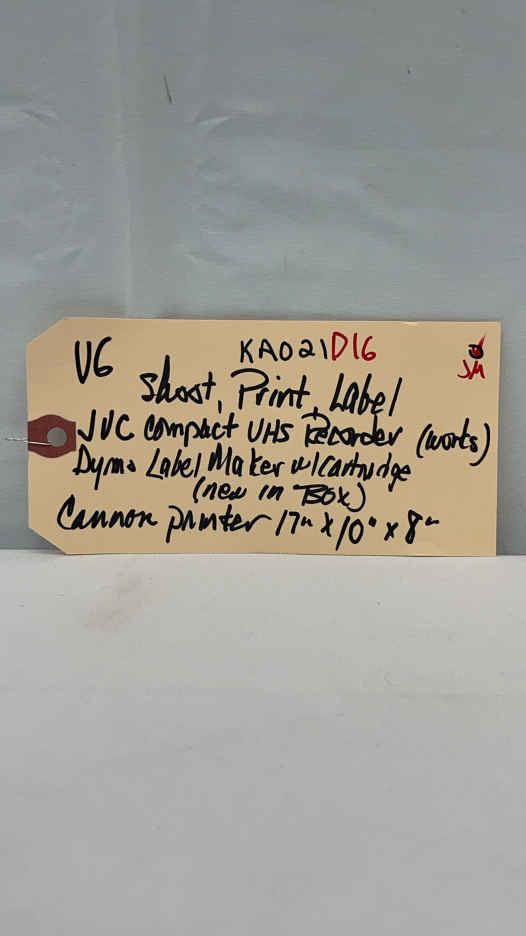 V6 KA021D16 JM
Shoot, Print, Label
JVC Compact VHS Recorder (works)
Dymo Label Maker w/Cartridge
(new in Box)
Cannon printer 17" x 10" x 8"